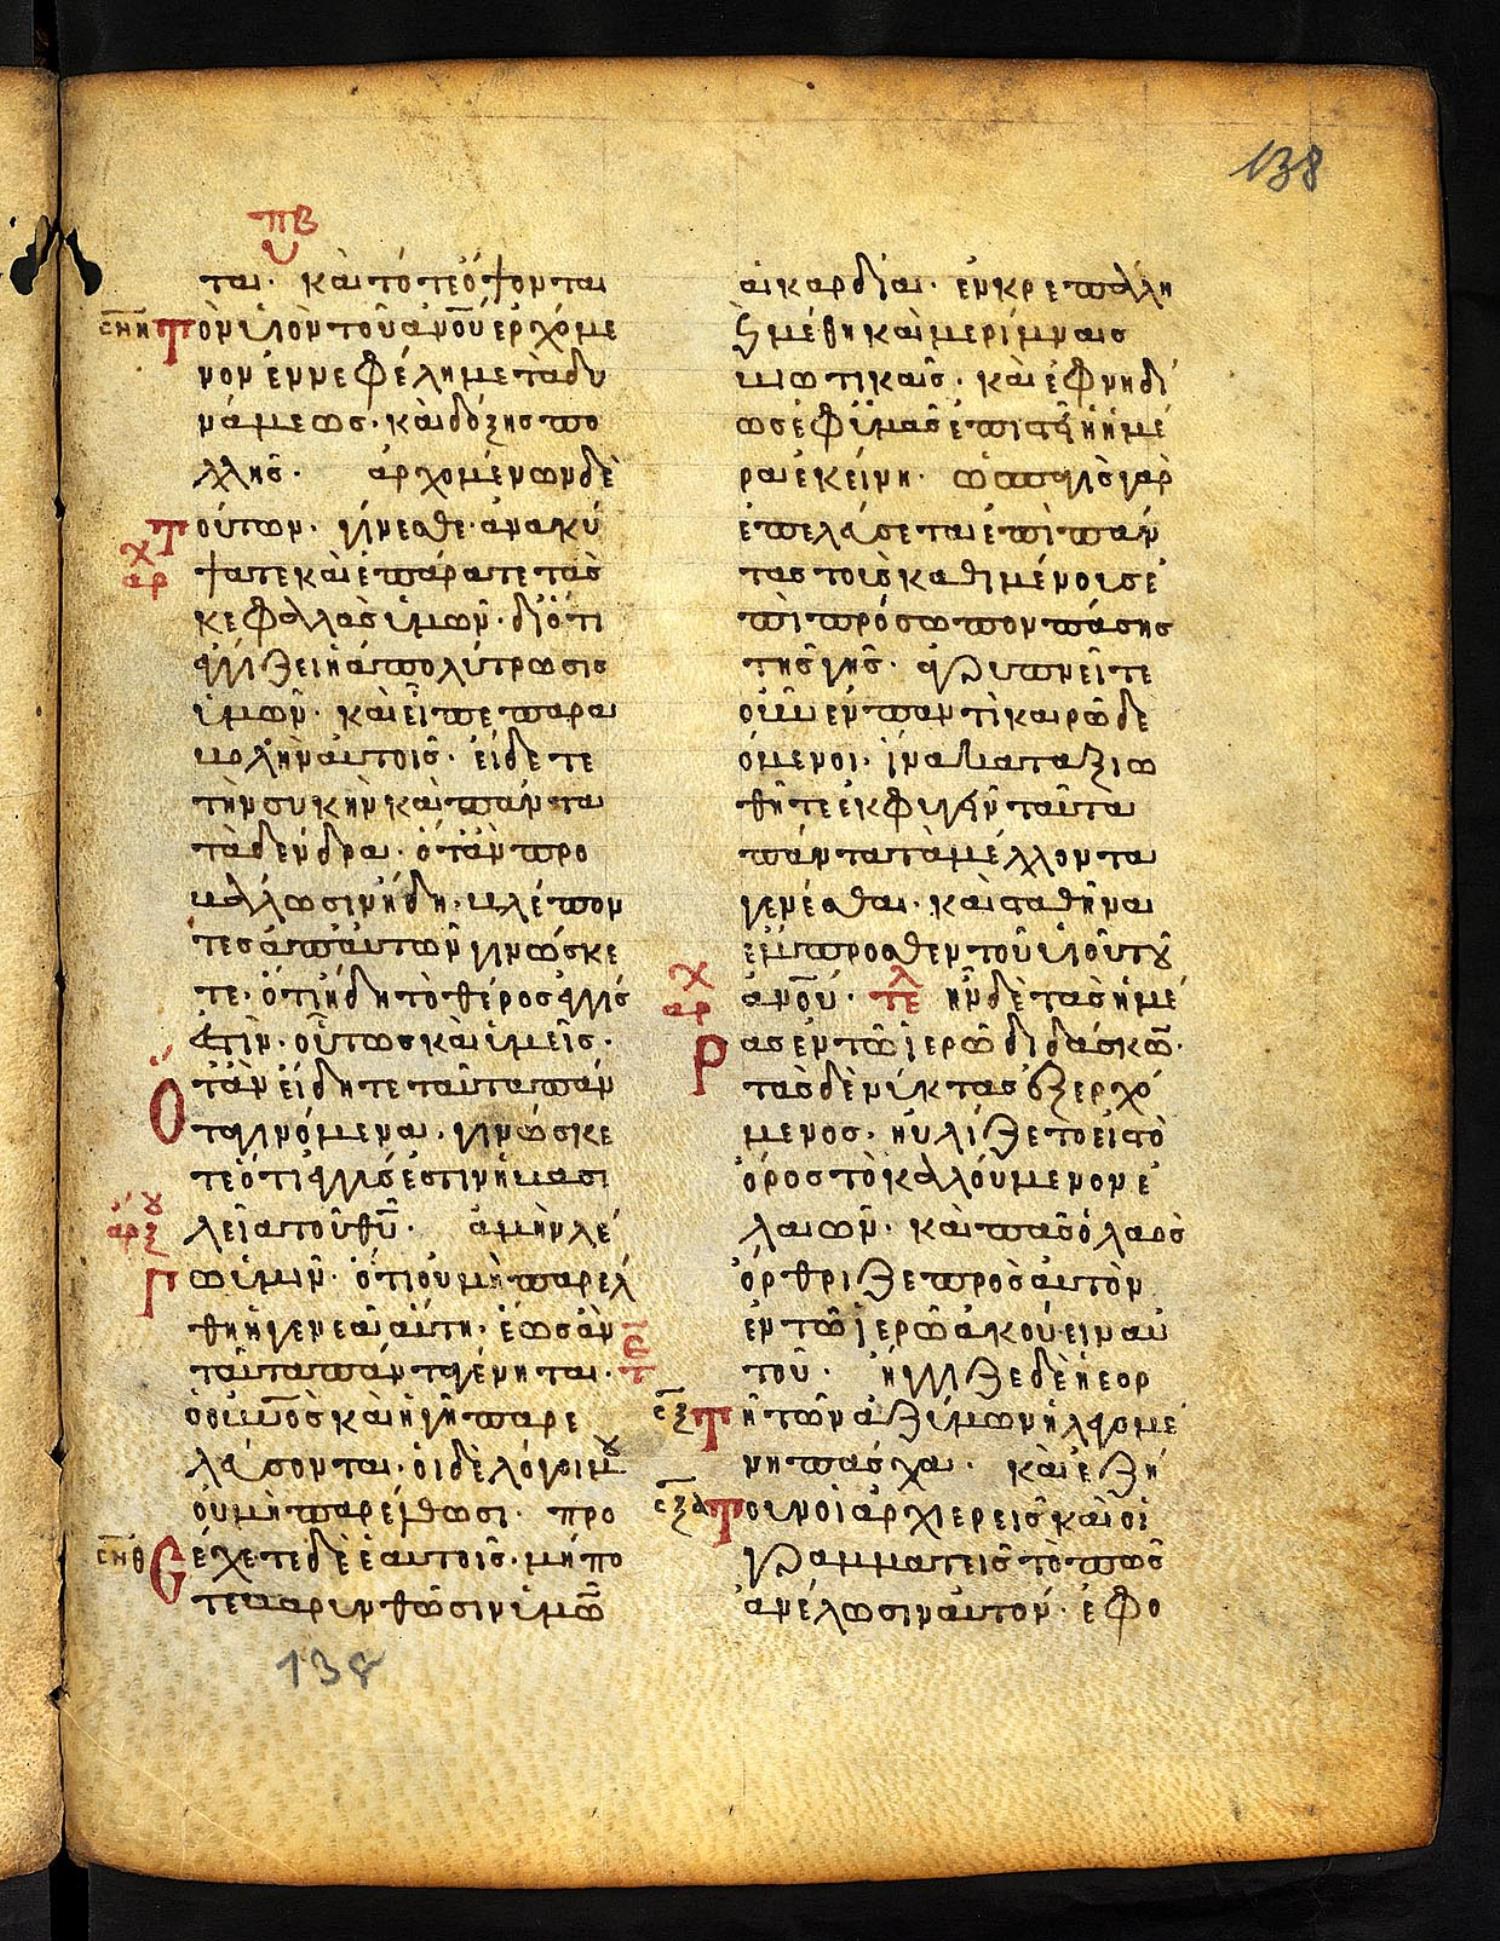 138
πβ
ται· καὶ τότε ὄψονται
σνη Τὸν υἱὸν τοῦ ἀνου ἐρχόμε
νον ἐν νεφέλη μετὰ δυ
νάμεως· καὶ δόξης πο
λλῆς· ἀρχομένων δὲ
Τούτων· γίνεσθε· ἀνακύ
χ
αρ
ψατε καὶ ἐπάρατε τὰς
κεφαλλὰς ὑμῶν· διότι
ἐγγίζει ἡ ἀπολύτρωσις
ὑμῶν· καὶ εἶπε παρα
βολὴν αυτοις· εἴδετε
τὴν συκῆν καὶ πάντα
τὰ δένδρα· ὅταν προ
βάλλωσιν ἤδη· βλέπον
τες ἀπ' αὐτῶν γινώσκε
τε· ὅτι ἤδη τὸ θέρος ἐγγύς
ἐστὶν· οὕτως καὶ ὑμεῖς·
Ὅταν εἴδητε ταῦτα πάν
τα γινόμενα· γινώσκε
τε ὅτι ἐγγύς ἐστιν ἡ βασι
λεία τοῦ θυ· ἀμὴν λέ
αρξ
Γω ὑμῖν· ὅτι οὐ μὴ παρέλ
θη ἡ γενεα αὕτη· ἕως ἂν
ταῦτα πάντα γένηται·
ὁ οὐνος καὶ ἡ γῆ παρε
λεύσονται· οἱ δὲ λόγοι μου
οὐ μὴ παρέλθωσι· προ
σνθ Ἐέχετε δὲ ἑαυτοῖς· μήπο
τε βαρυνθῶσιν ὑμῶν
138
αἱ καρδίαι· ἐν κρεπάλη
καὶ μέθη καὶ μερίμναις
βιωτικαῖς· καὶ ἐφνηδί
ως ἐφ' ὑμᾶς ἐπιστῆ ἡ ἡμέ
ρα ἐκείνη· ὡς παγὶς γὰρ
ἐπελεύσεται ἐπὶ πάν
τας τοὺς καθημένους ἐ
πὶ πρόσωπον πάσης
τῆς γῆς· ἀγρυπνεῖτε
οὖν ἐν παντὶ καιρῶ δε
όμενοι· ἵνα καταξιω
θῆτε ἐκφυγεῖν ταῦτα
πάντα τὰ μέλλοντα
γενέσθαι· καὶ σταθῆναι
ἔμπροσθεν τοῦ υἱοῦ του
ἀνου· τελ ἦν δὲ τὰς ἡμέ
χ
αρ
Ρας ἐν τῶ ἱερῶ διδάσκων·
τὰς δὲ νύκτας ἐξερχό
μενος· ηὐλίζετο εἰς τὸ
ὄρος τὸ καλούμενον ἐ
λαιῶν· καὶ πᾶς ὁ λαὸς
ὄρθριζε πρὸς αὐτὸν
ἐν τῶ ἱερῶ ἀκούειν αὐ
τοῦ· ἤγγιζε δὲ ἡ ἑορ
σξ Τὴ τῶν ἀζύμων ἡ λεγομέ
νη πάσχα· καὶ ἐζή
σξα Τουν οἱ ἀρχιερεῖς καὶ οἱ
γραμματεῖς τὸ πῶς
ἀνέλωσιν αὐτόν· ἐφο